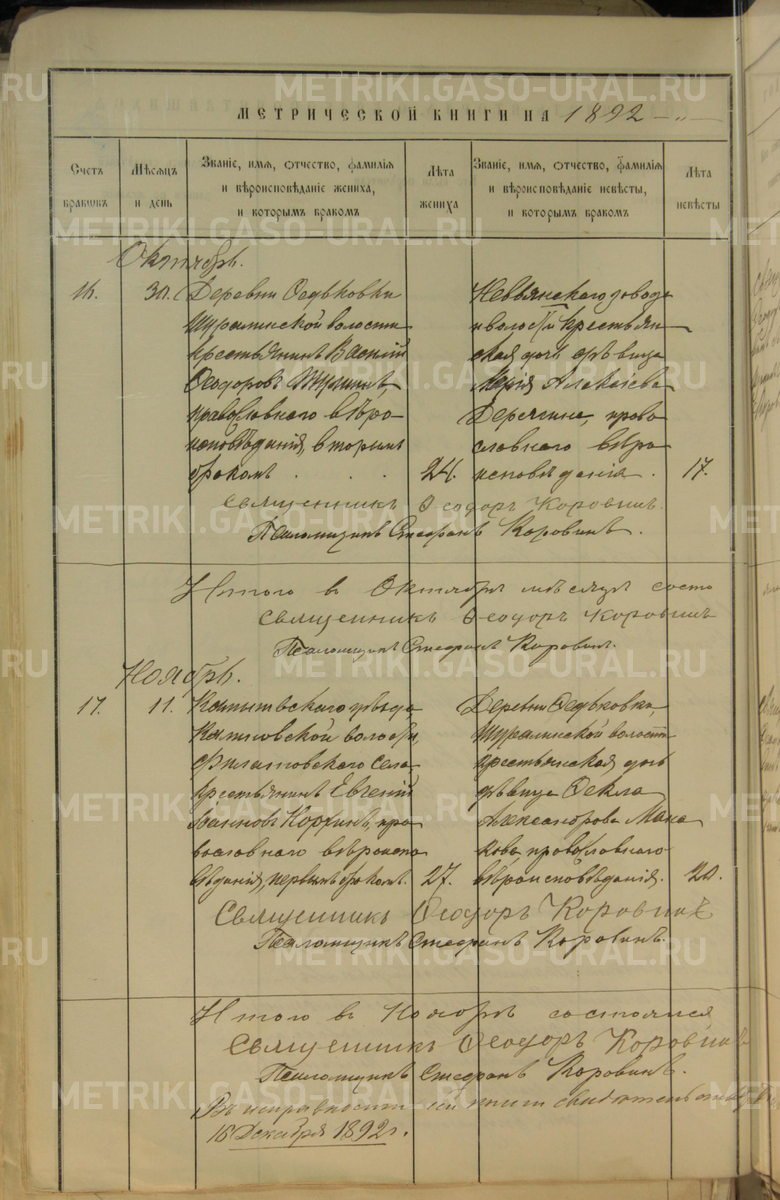 МЕТРИЧЕСКОЙ КНИГИ НА 1892
Счетъ браковъ
Мѣсяцъ и день
Званіе, имя, отчество, фамилія и вѣроисповѣданіе жениха, и которымъ бракомъ
Лѣта жениха
Званіе, имя, отчество, фамилія и вѣроисповѣданіе невѣсты, и которымъ бракомъ
Лѣта невѣсты
Октябрь.
16. 30. Деревни Ѳедьковки Невьянскаго завода
Шуралинской волости и волости крестьян
крестьянинъ Василій ская дочь дѣвица
Ѳеодоровъ Марія Алексѣева
православнаго вѣро право
исповѣданія, вторымъ славнаго вѣро
бракомъ . . . 24. исповѣданія . 17.
Священникъ Ѳеодоръ Коровинъ.
Псаломщикъ Стефанъ Коровинъ.
Итого въ Октябрѣ мѣсяцѣ состо
Священникъ Ѳеодоръ Коровинъ
Псаломщикъ Стефанъ Коровинъ.
Ноябрь.
17. 11. уѣзда Деревни Ѳедьковки,
волости, Шуралинской волости
Филатовскаго села крестьянская дочь
крестьянинъ Евгеній дѣвица Ѳекла
Іоанновъ пра Александрова Мака
вославнаго вѣроиспо кова, православнаго
вѣданія, первымъ бракомъ. 27. вѣроисповѣданія. 20.
Священникъ Ѳеодоръ Коровинъ
Псаломщикъ Стефанъ Коровинъ.
Итого въ Ноябрѣ состоялся
Священникъ Ѳеодоръ Коровинъ
Псаломщикъ Стефанъ Коровинъ.
Въ исправности сей книги
16 Декабря 1892 г.
METRIKI.GASO-URAL.RU